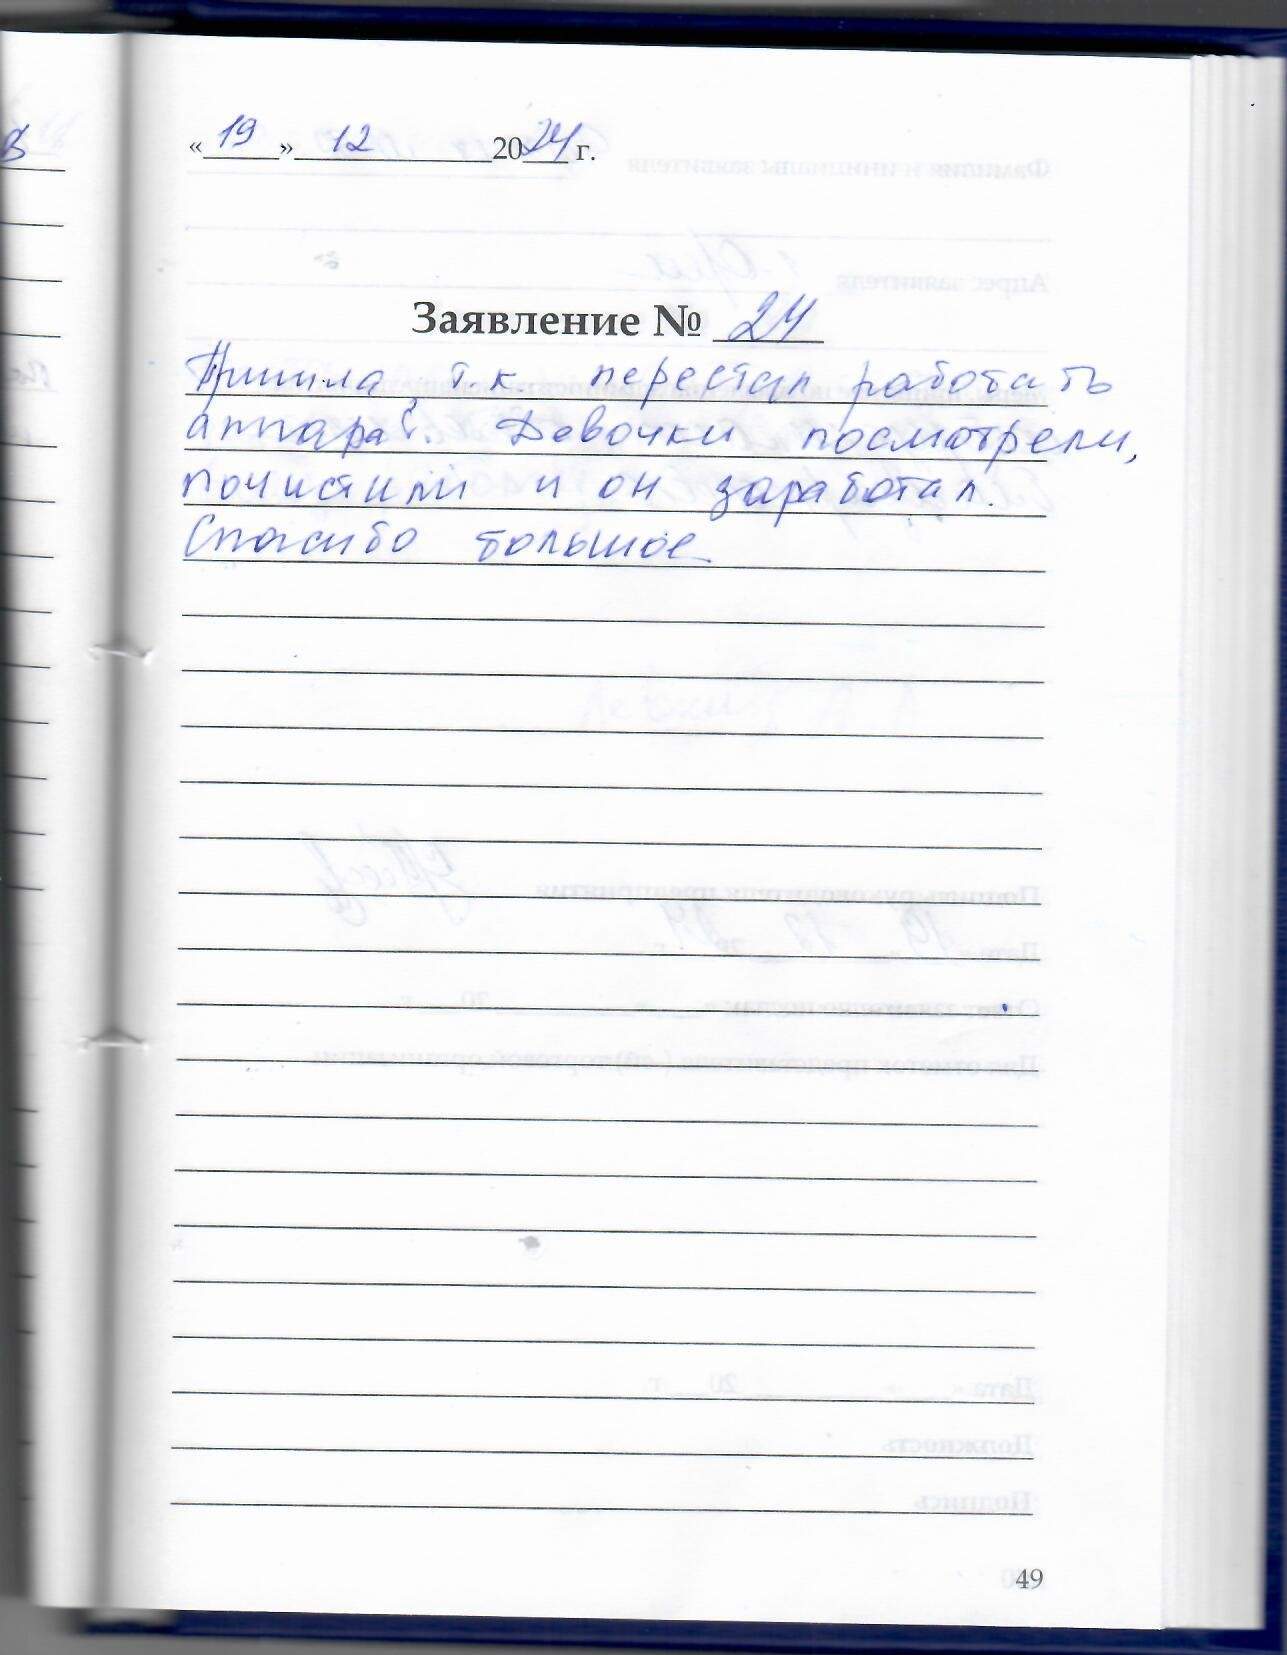 «19» 12 2024 г.
Заявление № 24
Пришла, т.к. перестал работать
аппарат. Девочки посмотрели,
почистили и он заработал.
Спасибо большое
49